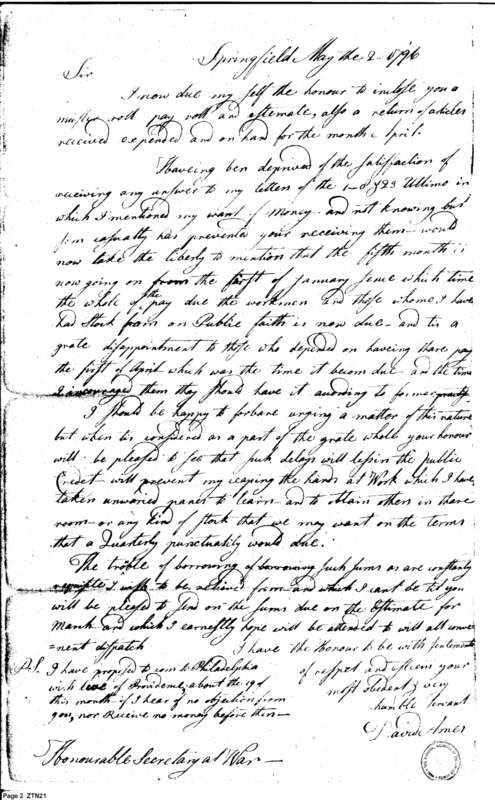 Springfield May the 2 1796
Sir
I now due my self the honour to inclose you a
muster roll pay roll and estemate, also a return of articles
received expended and on hand for the month April.
Haveing ben deprived of the satisfaction of
receiving any answer to my letters of the 1-8 & 23 Ultimo in
which I mentioned my want of Money - and not knowing but
sum casualty has prevented your receiving them - would
now take the liberty to mention that the fifth month is
now going on from the first of january sence which time
the whole of the pay due the workmen and those whome I have
had Stock from on Public faith is now due - and tis a
grate disappointment to those who depended on haveing thare pay
the first of April which was the time it becom due - and the time
I incouraged them they should have it acording to former practis
I should be happy to forbare urging a mattor of this nature
but when tis considered as a part of the grate whole your honour
will be pleased to see that such delays will lessen the public
Credet - will prevent my keaping the hands at Work which I have
taken unwaried panes to learn and to obtain others in thare
room - or any kind of stock that we may want on the terms
that a Quarterly punctuality would due.
The troble of borrowing of borrowing such sums as are constantly
requisite I wish to be relieved from and which I cant be til you
will be pleased to send on the sums due on the Estimate for
March and which I earnestly hope will be attended to will all conve
=nent dispatch I have the Honour to be with sentements
of respect and esteem your
most obedent & very
humble Servant
David Ames
P.S. I have proposed to com to Philadelphia
with leve of Providence, about the 19 of
this month if I hear of no objection from
you, nor Receive no money before then -
Honourable Secretary at War -
Page 2 ZTN21